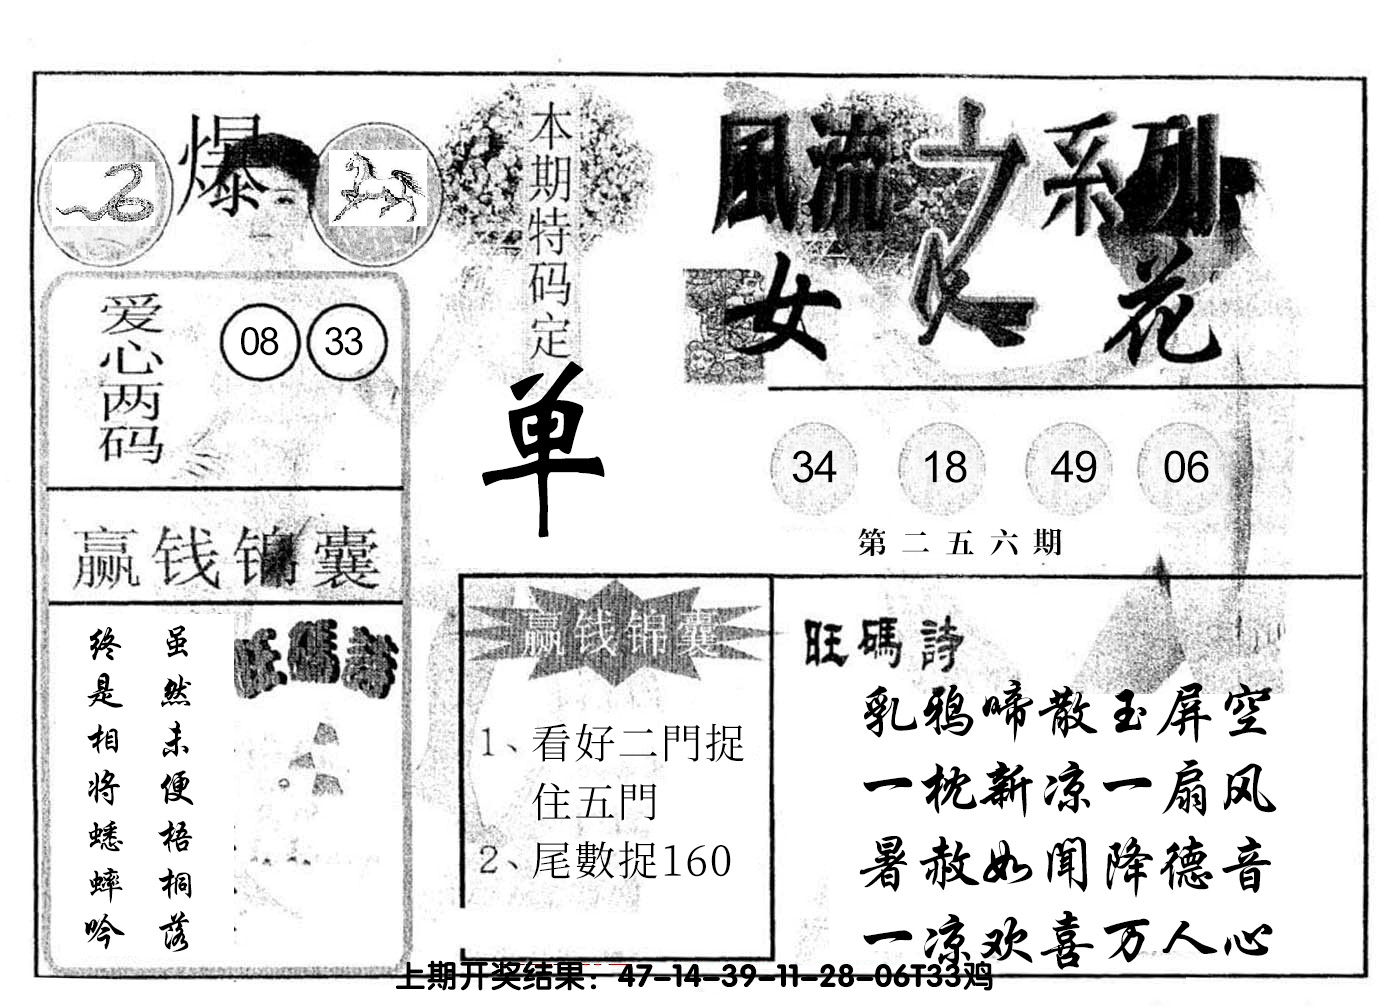 爆
本期特码定
单
風流之系列
女人花
爱心两码
08 33
34 18 49 06
第二五六期
赢钱锦囊
虽然未便梧桐落
终是相将蟋蟀吟
旺碼詩
赢钱锦囊
1、看好二門捉
住五門
2、尾數捉160
旺碼詩
乳鸦啼散玉屏空
一枕新凉一扇风
暑赦如闻降德音
一凉欢喜万人心
上期开奖结果：47-14-39-11-28-06T33鸡